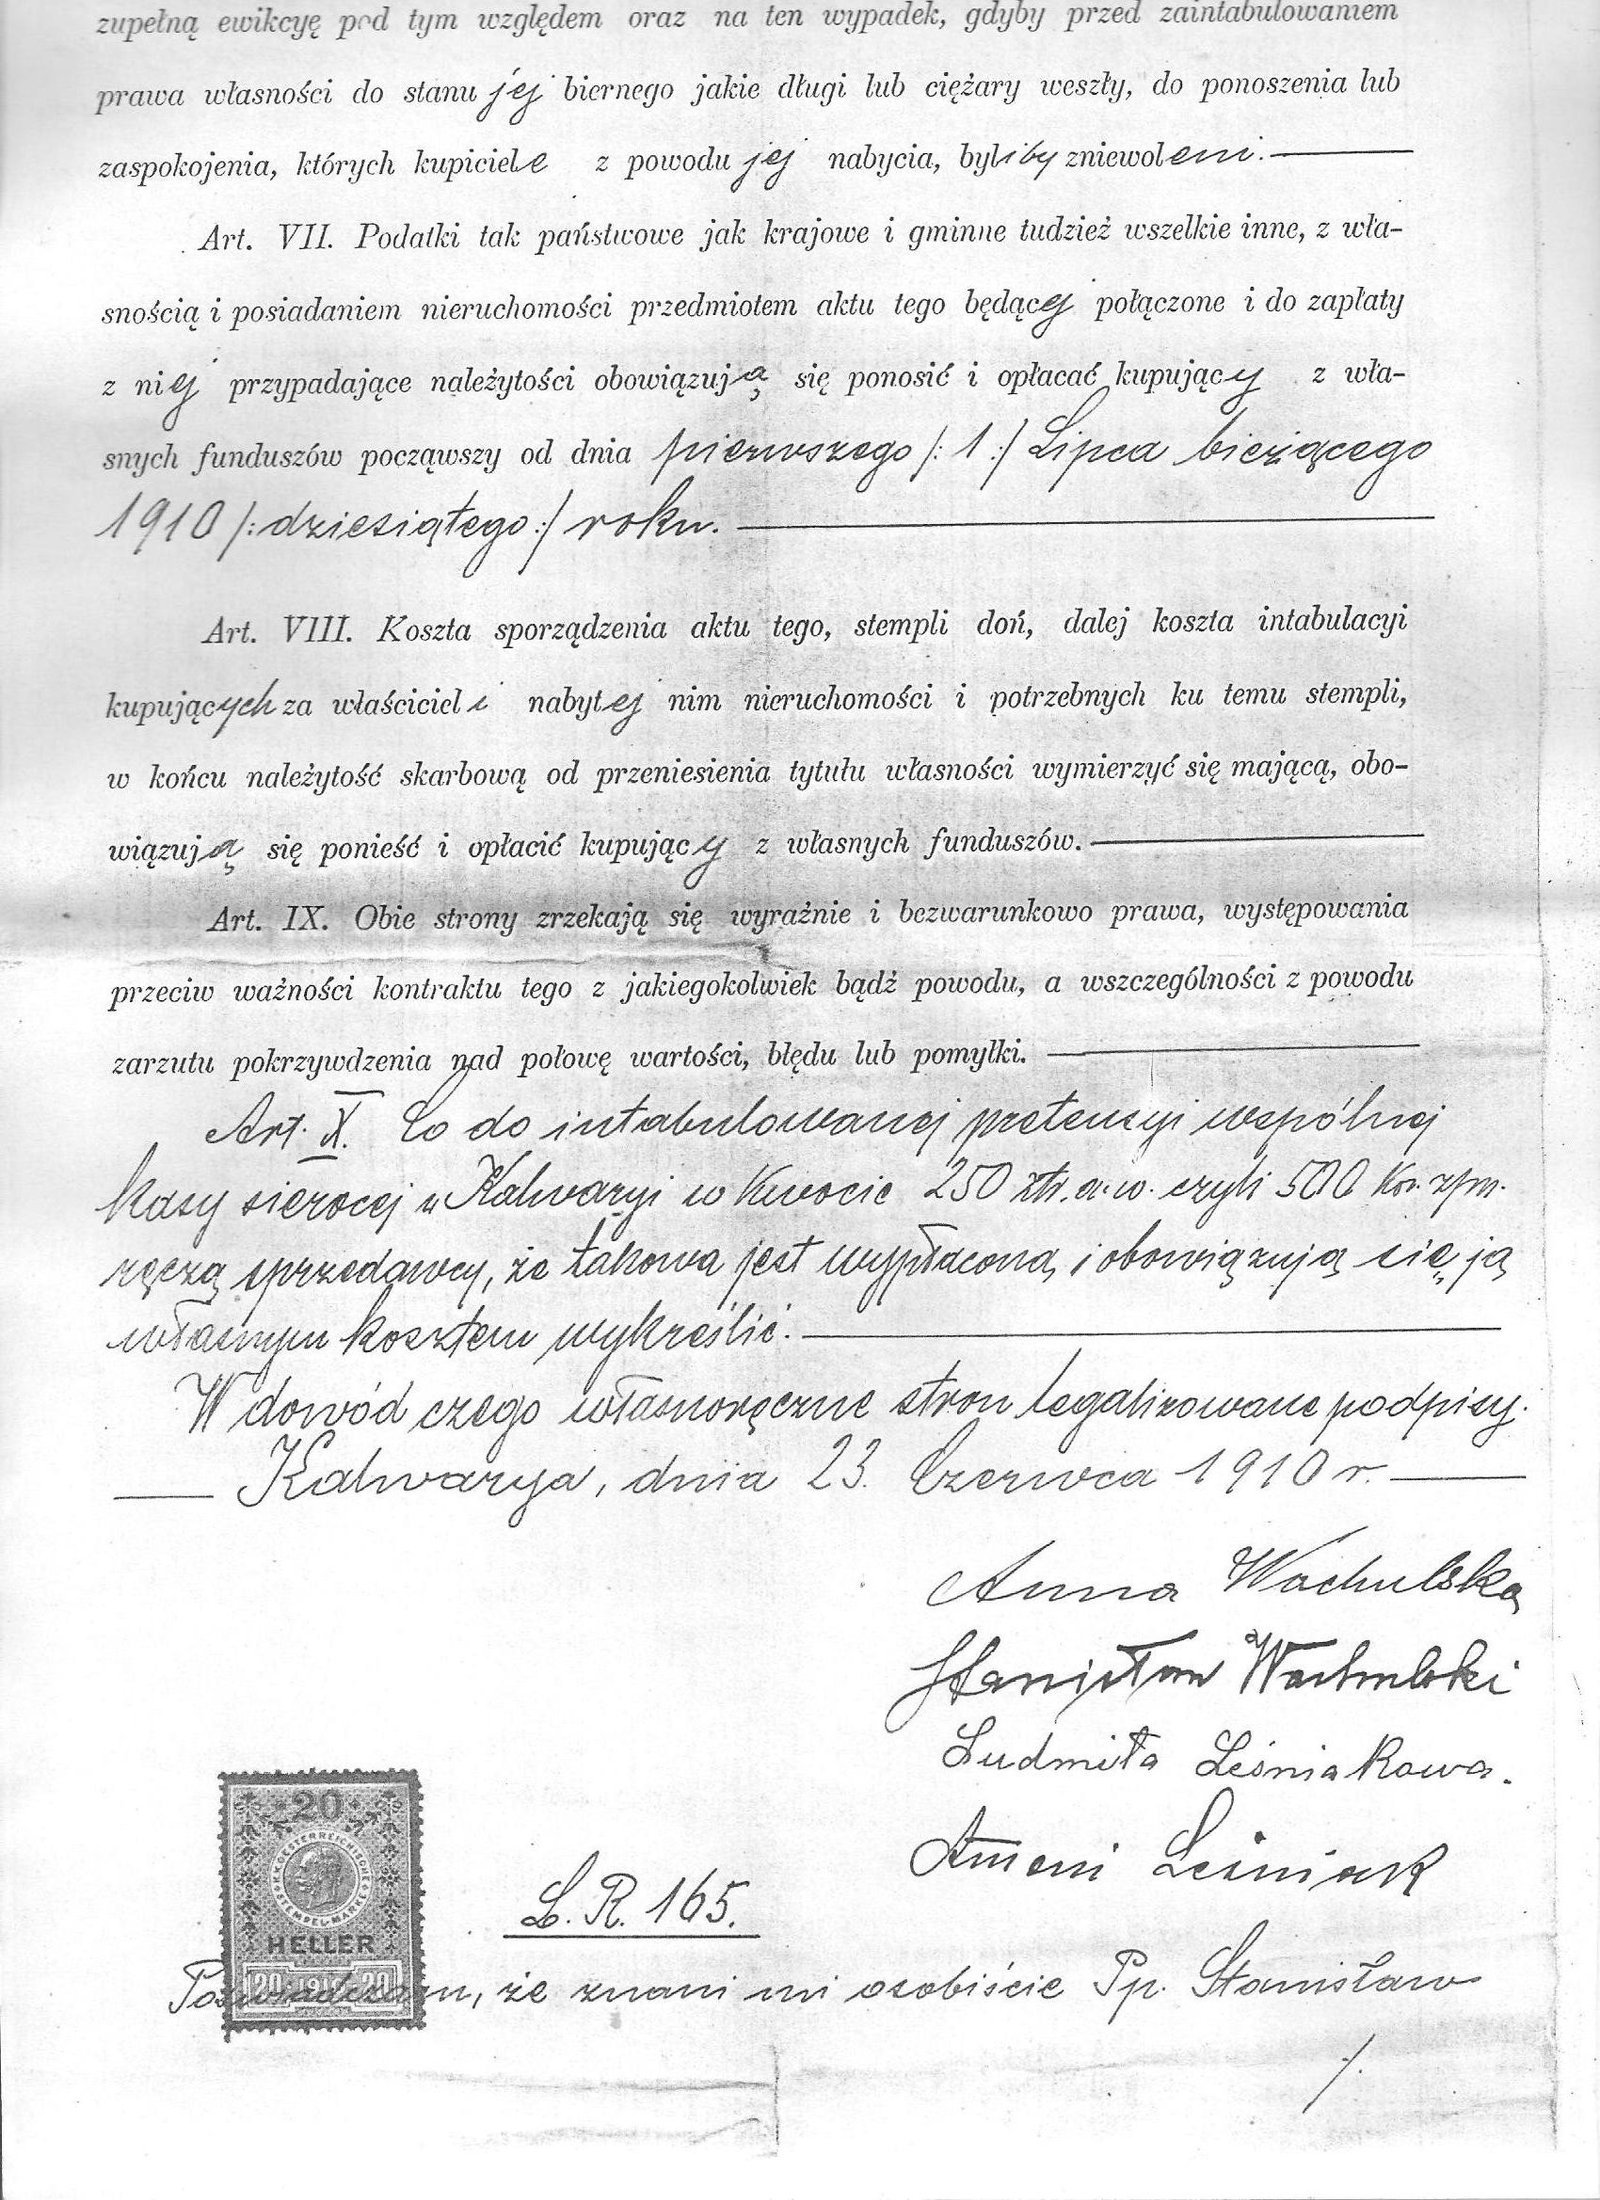 zupełną ewikcyę pod tym względem oraz na ten wypadek, gdyby przed zaintabulowaniem
prawa własności do stanu jej biernego jakie długi lub ciężary weszły, do ponoszenia lub
zaspokojenia, których kupiciele z powodu jej nabycia, byliby zniewoleni.
Art. VII. Podatki tak państwowe jak krajowe i gminne tudzież wszelkie inne, z wła-
snością i posiadaniem nieruchomości przedmiotem aktu tego będącej połączone i do zapłaty
z niej przypadające należytości obowiązują się ponosić i opłacać kupujący z wła-
snych funduszów począwszy od dnia pierwszego /: 1 :/ Lipca bieżącego
1910 /: dziesiątego :/ roku.
Art. VIII. Koszta sporządzenia aktu tego, stempli doń, dalej koszta intabulacyi
kupujących za właścicieli nabytej nim nieruchomości i potrzebnych ku temu stempli,
w końcu należytość skarbową od przeniesienia tytułu własności wymierzyć się mającą, obo-
wiązują się ponieść i opłacić kupujący z własnych funduszów.
Art. IX. Obie strony zrzekają się wyraźnie i bezwarunkowo prawa, występowania
przeciw ważności kontraktu tego z jakiegokolwiek bądź powodu, a wszczególności z powodu
zarzutu pokrzywdzenia nad połowę wartości, błędu lub pomyłki.
Art. X. Co do intabulowanej pretensyi wspólnej
kasy sierocej w Kalwaryi w kwocie 250 złr. a. w. czyli 500 Kor. zpn.
ręczą sprzedawcy, że takowa jest wypłacona, i obowiązują się, ją
własnym kosztem wykreślić.
W dowód czego własnoręczne stron legalizowane podpisy.
Kalwarya, dnia 23. Czerwca 1910 r.
Anna Wachulska
Stanisław Wachulski
Ludmiła Leśniakowa.
Antoni Leśniak
20
K.K. OESTERREICHISCHE STEMPEL-MARKE
HELLER
20 1910 20
L. R. 165.
Poświadczam, że znani mi osobiście Pp. Stanisław
./.